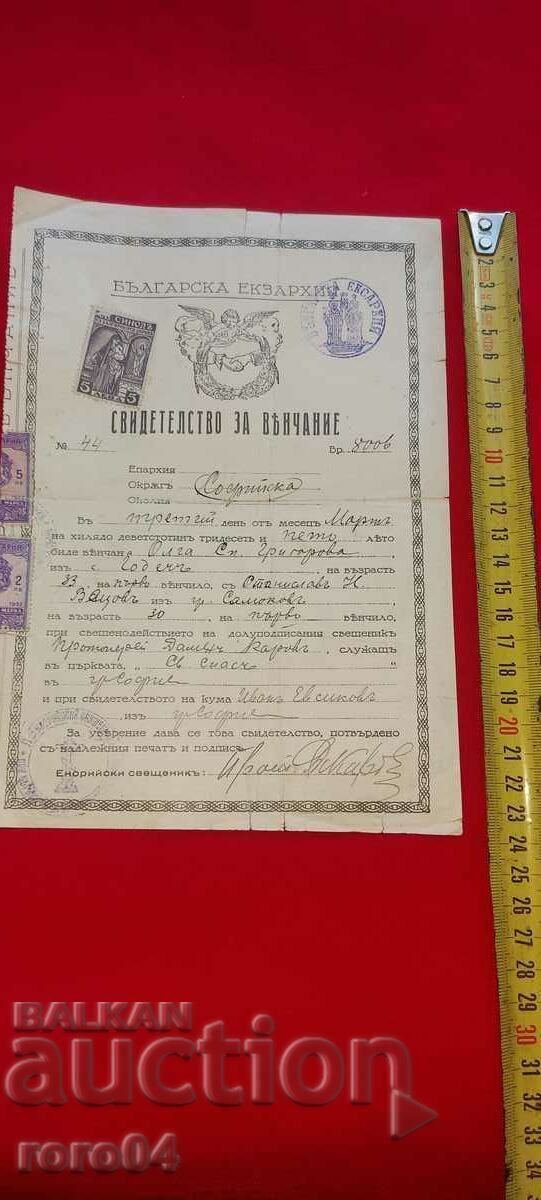 БЪЛГАРСКА ЕКЗАРХИЯ
СВ. СИНОДЪ
3 ЛЕВА 3
СВИДЕТЕЛСТВО ЗА ВѢНЧАНИЕ
№ 44 Бр. 8006
Епархия
Окрѫгъ Софийска
Околия
Въ третий день отъ месецъ Мартъ
на хилядо деветстотинъ тридесеть и петь лѣто
биле вѣнчани Олга Сп. Григорова
изъ с. Годечъ на възрасть
33 на първо вѣнчило, съ Станиславъ Н.
Вацовъ изъ гр. Самоковъ
на възрасть 30 на първо вѣнчило,
при свещенодействието на долуподписания свещеникъ
Протоиерей Каровъ, служащъ
въ църквата „Св. Спасъ“
въ гр. София
и при свидетелството на кума Иванъ Евсиковъ
изъ гр. София
За уверение дава се това свидетелство, потвърдено
съ надлежния печатъ и подписъ.
Енорийски свещеникъ:
5 лв
2 лв
1932
МАРКА
BALKAN
auction
roro04
2 3 4 5 6 7 8 9 10 11 12 13 14 15 16 17 18 19 20 21 22 23 24 25 26 27 28 29 30 31 32 33 34